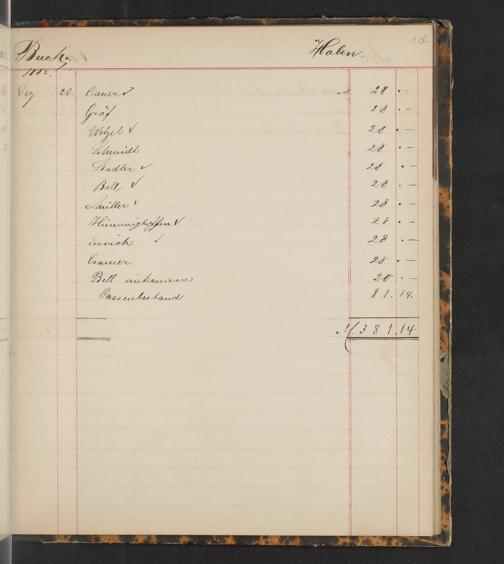 Buch. Haben.
Dez 20. Cauer ✓ M 28 . —
Gräf 28 . —
Wetzel ✓ 28 . —
Schmidt 28 . —
Stadler ✓ 28 . —
Bell ✓ 28 . —
Müller ✓ 28 . —
Himmighoffen ✓ 28 . —
Emrich ✓ 28 . —
Cramer 28 . —
Bell 20 . —
Cassenbestand 81.14.
M. 381.14